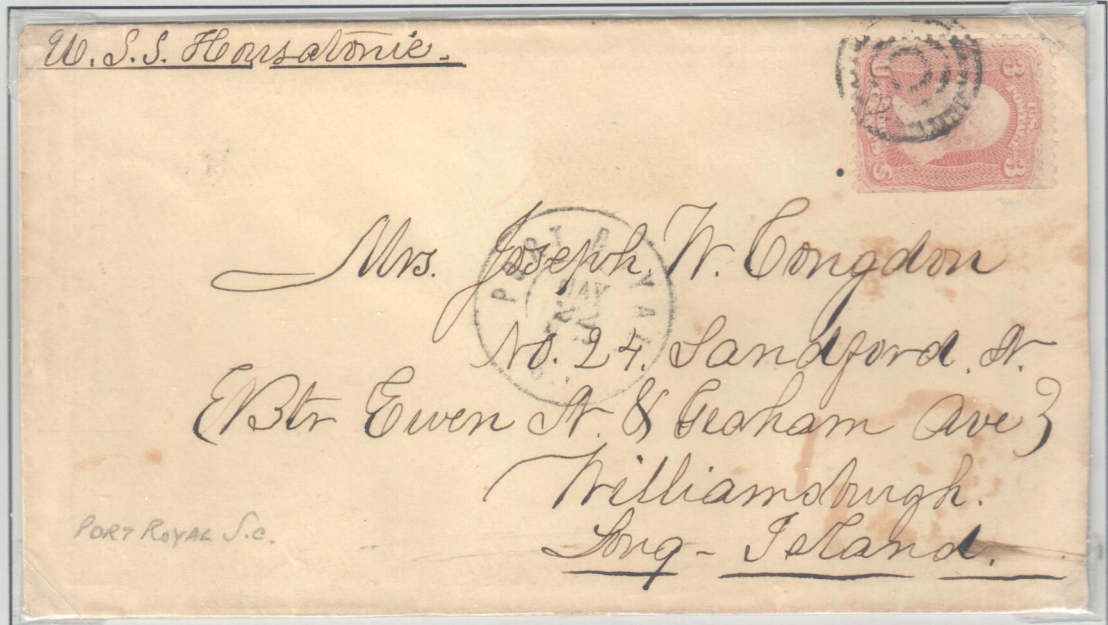 U.S.S. Housatonic.
3 3
U S
PORT ROYAL
MAY
Mrs. Joseph W. Congdon
No. 24. Sandford. St.
(Btr Ewen St. & Graham Ave)
Williamsburgh.
Long - Island.
PORT ROYAL S.C.